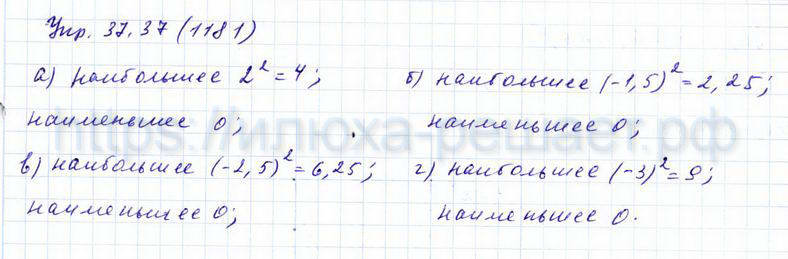 Упр. 37.37 (1181)
а) наибольшее 2² = 4; б) наибольшее (-1,5)² = 2,25;
наименьшее 0; наименьшее 0;
https://илюха-решает.рф
в) наибольшее (-2,5)² = 6,25; г) наибольшее (-3)² = 9;
наименьшее 0; наименьшее 0.